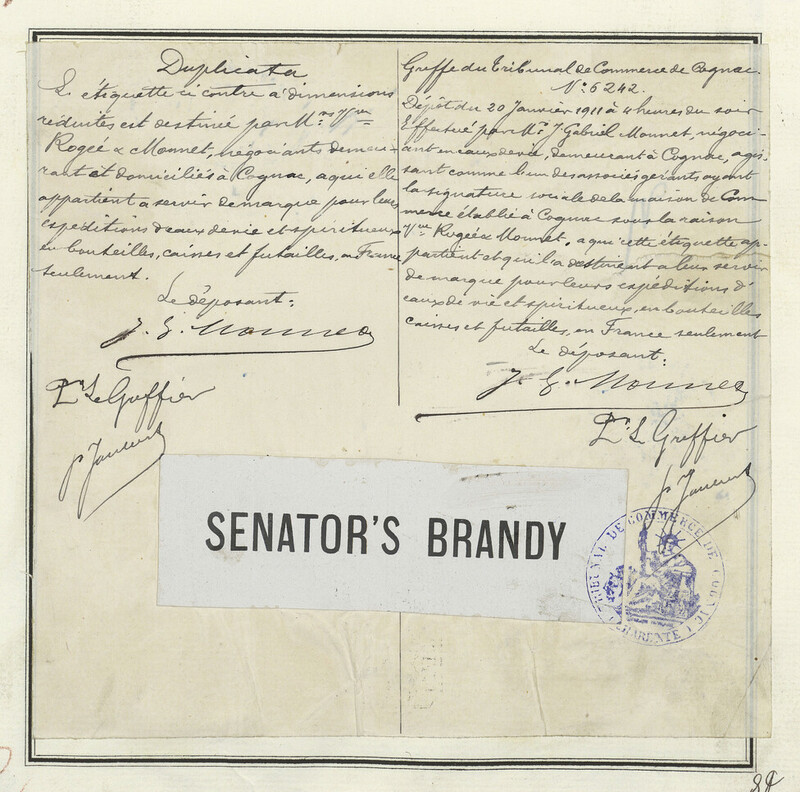 Duplicata
L'étiquette ci contre à dimensions
réduites est destinée par M.rs Vve
Rogée & Monnet, négociants demeu-
rant et domiciliés à Cognac, a qui elle
appartient a servir de marque pour leurs
expéditions d'eaux de vie et spiritueux
en bouteilles, caisses et futailles, en France
seulement.
Le déposant:
J. G. Monnet
Le Greffier
Greffe du Tribunal de Commerce de Cognac.
N° 6242.
Dépôt du 20 Janvier 1911 à 4 heures du soir
Effectué par Mr. J. Gabriel Monnet, négoci-
ant en eaux de vie, demeurant à Cognac, agis-
sant comme l'un des associés gérants ayant
la signature sociale de la maison de Com-
merce établie à Cognac sous la raison
Vve Rogée & Monnet, a qui cette étiquette ap-
partient et qui l'a destinent a leur servir
de marque pour leurs expéditions d'
eaux de vie et spiritueux, en bouteilles
caisses et futailles, en France seulement
Le déposant:
J. G. Monnet
Le Greffier
SENATOR'S BRANDY
TRIBUNAL DE COMMERCE DE COGNAC
CHARENTE